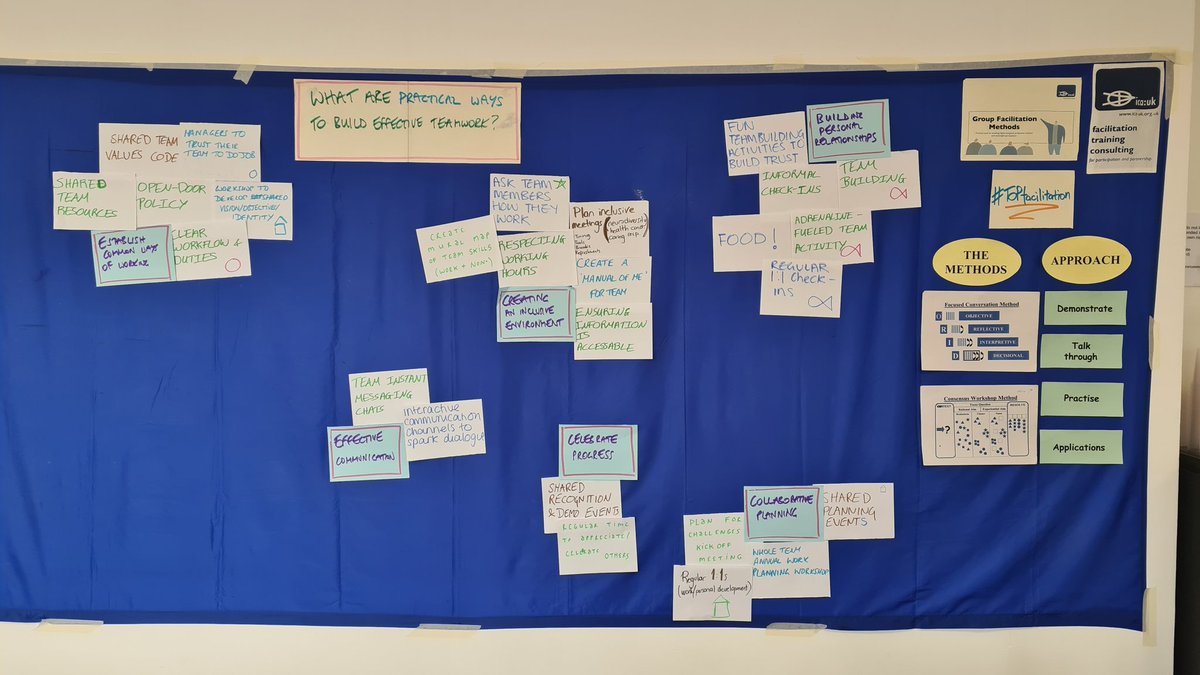 WHAT ARE PRACTICAL WAYS
TO BUILD EFFECTIVE TEAMWORK?
SHARED TEAM
VALUES CODE
MANAGERS TO
TRUST THEIR
TEAM TO DO JOB
SHARED
TEAM
RESOURCES
OPEN-DOOR
POLICY
WORKSHOP TO
DEVELOP SHARED
VISION/OBJECTIVE/
IDENTITY
ESTABLISH
COMMON WAYS
OF WORKING
CLEAR
WORKFLOW &
DUTIES
CREATE
MURAL MAP
OF TEAM SKILLS
(WORK + NON-)
ASK TEAM
MEMBERS
HOW THEY
WORK
Plan inclusive
meetings
(neurodiversity
health cond.
caring resp.)
Timing
Breaks
Refreshments
RESPECTING
WORKING
HOURS
CREATE A
'MANUAL OF ME'
FOR TEAM
CREATING
AN INCLUSIVE
ENVIRONMENT
ENSURING
INFORMATION
IS
ACCESSABLE
FUN
TEAMBUILDING
ACTIVITIES TO
BUILD TRUST
BUILDING
PERSONAL
RELATIONSHIPS
INFORMAL
CHECK-INS
TEAM
BUILDING
FOOD!
ADRENALINE-
FUELED TEAM
ACTIVITY
REGULAR
1:1 CHECK-
INS
TEAM INSTANT
MESSAGING
CHATS
interactive
communication
channels to
spark dialogue
EFFECTIVE
COMMUNICATION
CELEBRATE
PROGRESS
SHARED
RECOGNITION
& DEMO EVENTS
REGULAR TIME
TO APPRECIATE/
CELEBRATE OTHERS
COLLABORATIVE
PLANNING
SHARED
PLANNING
EVENTS
PLAN FOR
CHALLENGES
KICK OFF
MEETING
WHOLE TEAM
ANNUAL WORK
PLANNING WORKSHOP
Regular 1:1s
(work/personal development)
Group Facilitation
Methods
ica:uk
www.ica-uk.org.uk
facilitation
training
consulting
for participation and partnership
#ToPfacilitation
THE
METHODS
APPROACH
Focused Conversation Method
O OBJECTIVE
R REFLECTIVE
I INTERPRETIVE
D DECISIONAL
Consensus Workshop Method
Demonstrate
Talk
through
Practise
Applications